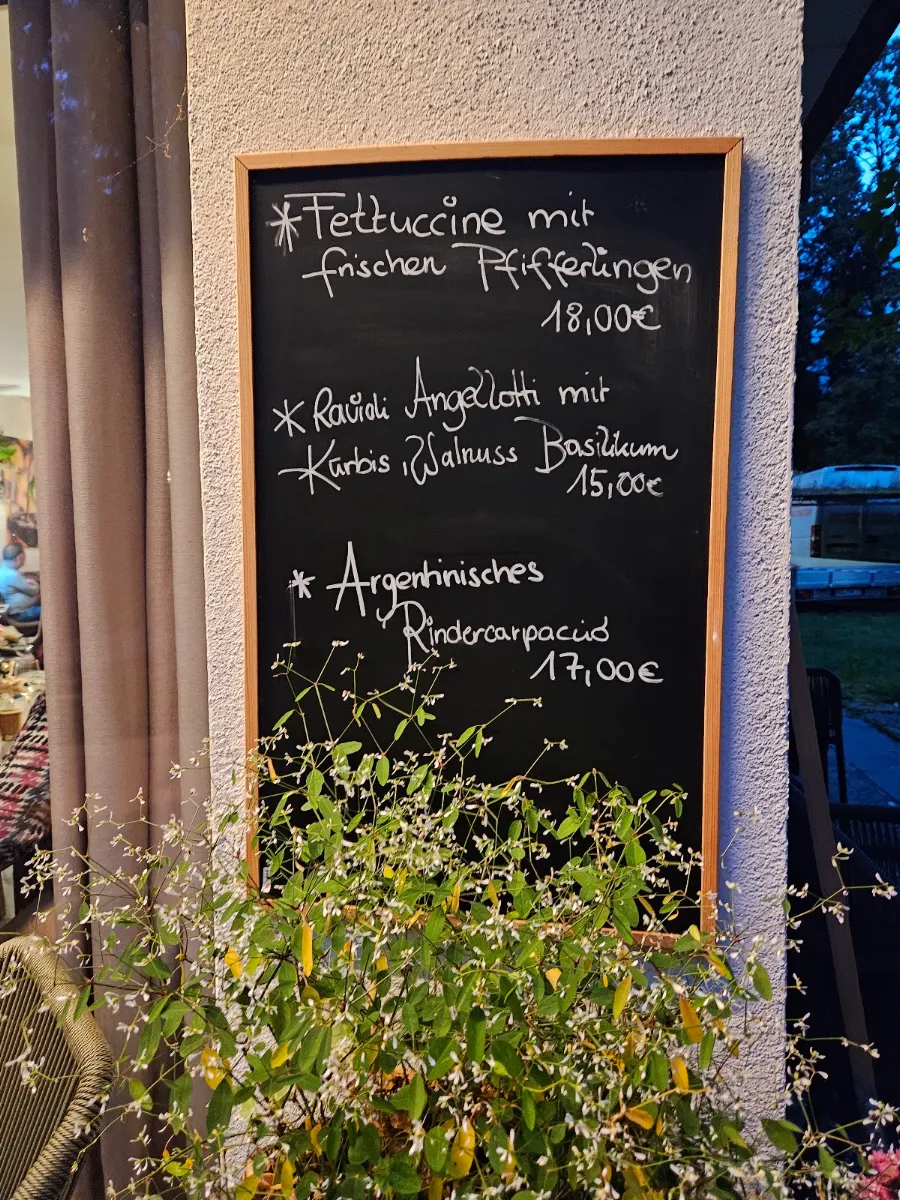 * Fettuccine mit
frischen Pfifferlingen
18,00€
* Ravioli Angellotti mit
Kürbis, Walnuss Basilikum
15,00€
* Argentinisches
Rindercarpaccio
17,00€